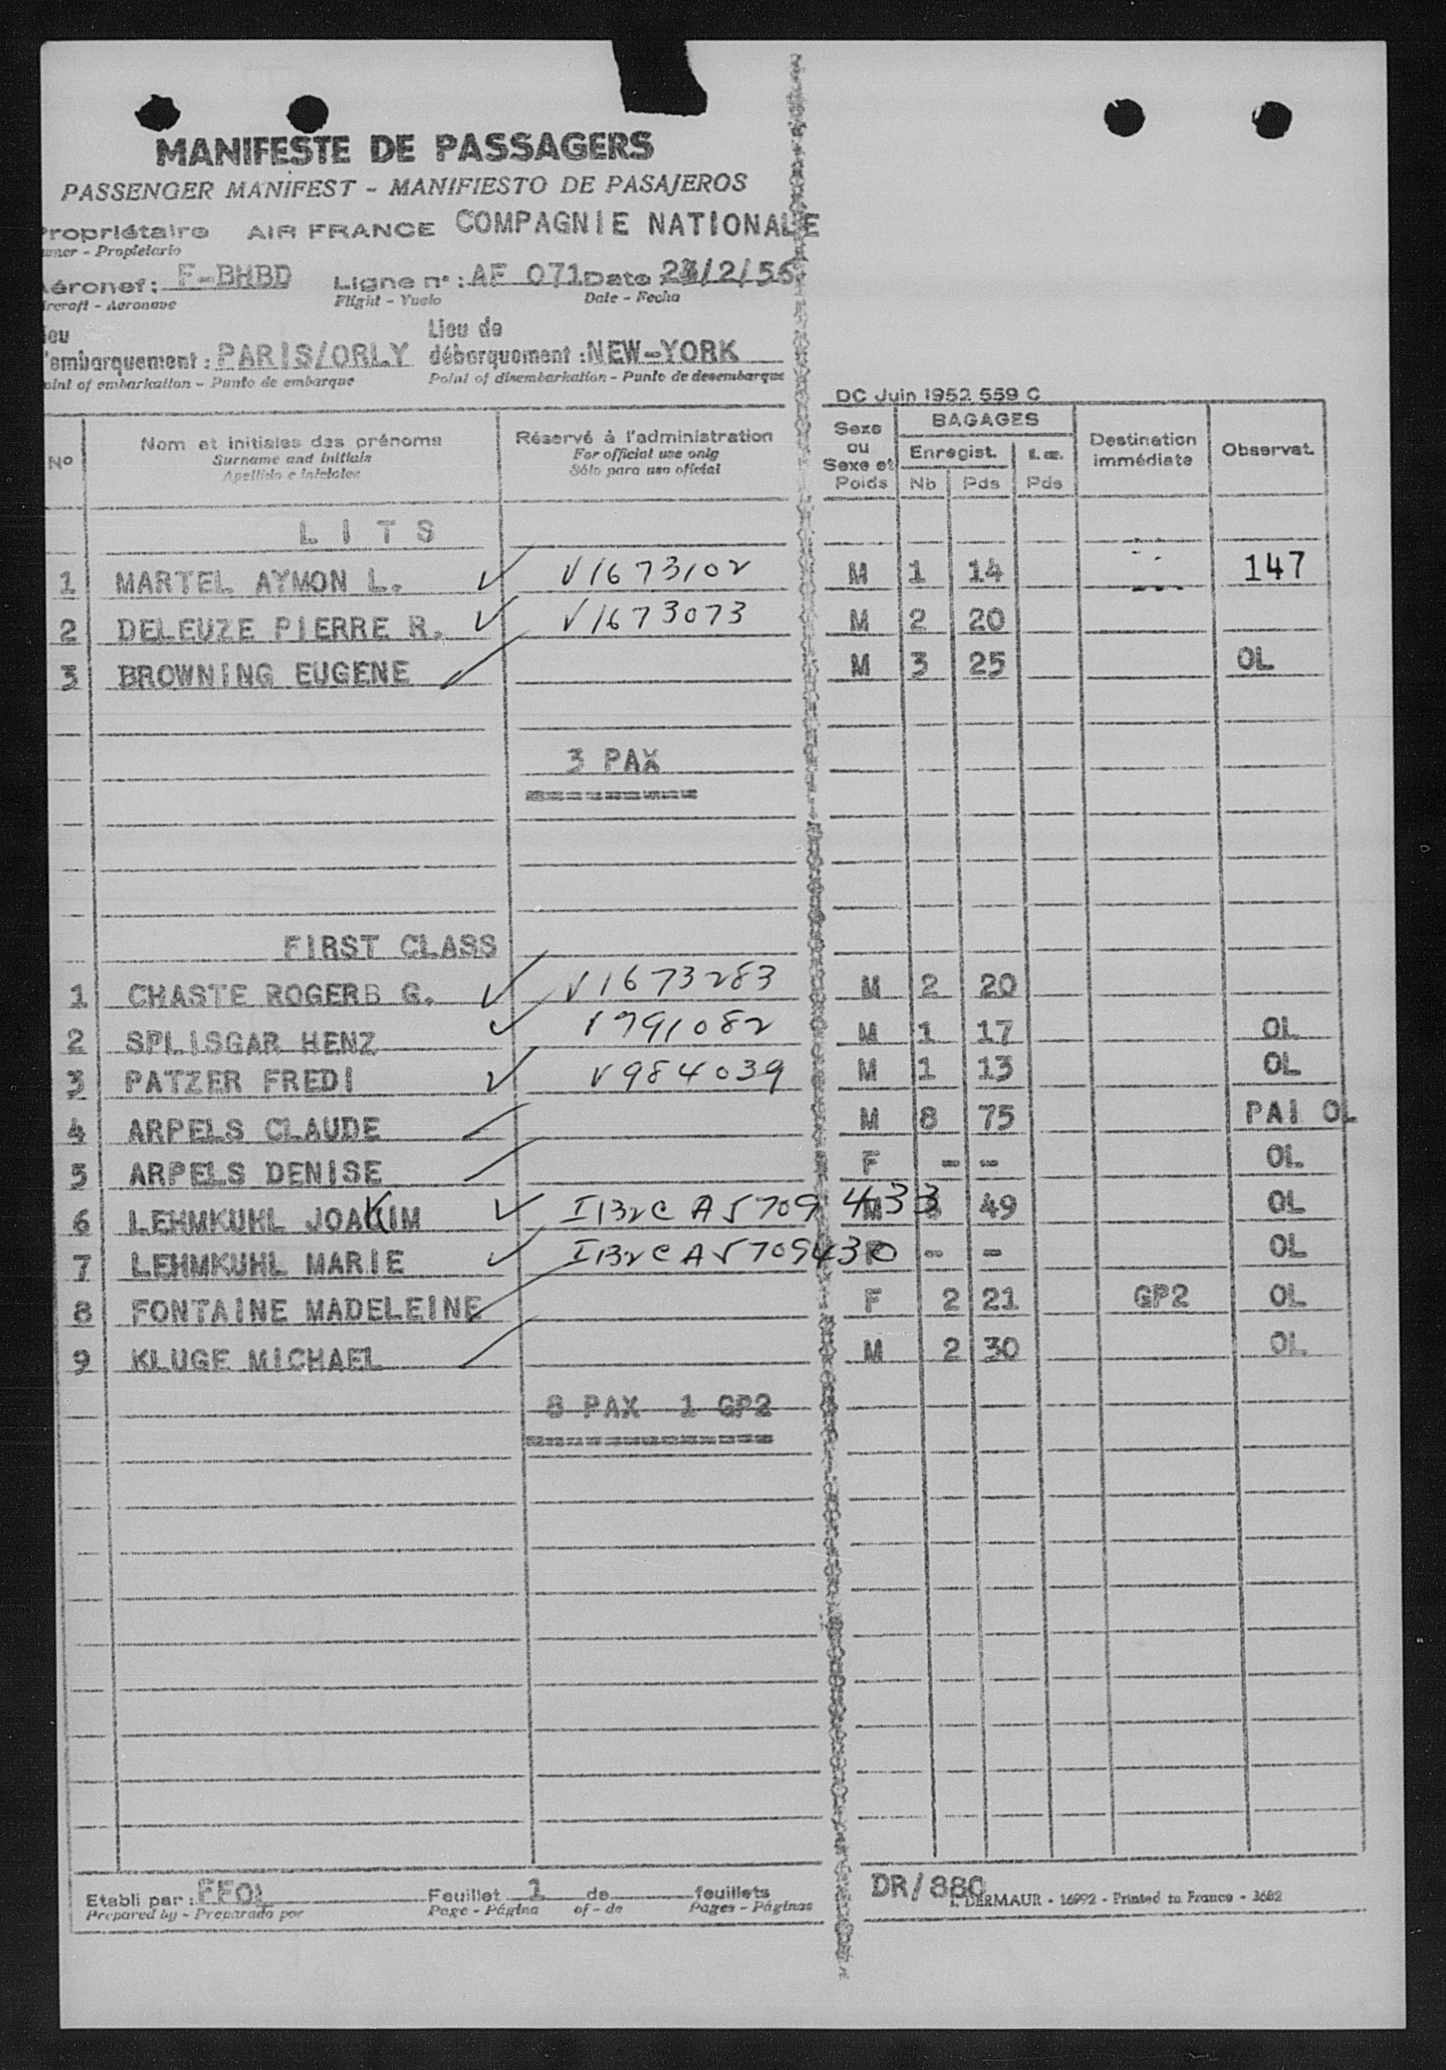 MANIFESTE DE PASSAGERS
PASSENGER MANIFEST - MANIFIESTO DE PASAJEROS
Propriétaire AIR FRANCE COMPAGNIE NATIONALE
Owner - Propietario
Aéronef : F-BHBD Ligne n° : AF 071 Date 2 /2/56
Aircraft - Aeronave Flight - Vuelo Date - Fecha
Lieu d'embarquement : PARIS/ORLY Lieu de débarquement : NEW-YORK
Point of embarkation - Punto de embarque Point of disembarkation - Punto de desembarque
DC Juin 1952 559 C
N° Nom et initiales des prénoms Réservé à l'administration Sexe ou Sexe et Poids BAGAGES Destination immédiate Observat.
Surname and initials For official use only Enregist.
Apellido e iniciales Sólo para uso oficial Nb Pds Pds
LITS
1 MARTEL AYMON L. V1673102 M 1 14 147
2 DELEUZE PIERRE R. V1673073 M 2 20
3 BROWNING EUGENE M 3 25 OL
3 PAX
FIRST CLASS
1 CHASTE ROGERB G. V1673283 M 2 20
2 SPLISGAR HENZ V791082 M 1 17 OL
3 PATZER FREDI V984039 M 1 13 OL
4 ARPELS CLAUDE M 8 75 PAI OL
5 ARPELS DENISE F - - OL
6 LEHMKUHL JOAKIM I132C A5709433 M 49 OL
7 LEHMKUHL MARIE I132C A5709430 - - OL
8 FONTAINE MADELEINE F 2 21 GP2 OL
9 KLUGE MICHAEL M 2 30 OL
8 PAX 1 GP2
Etabli par : Feuillet 1 de feuillets DR/880
Prepared by - Preparado por Page - Página of - de Pages - Páginas DERMAUR - 16992 - Printed in France - 3682